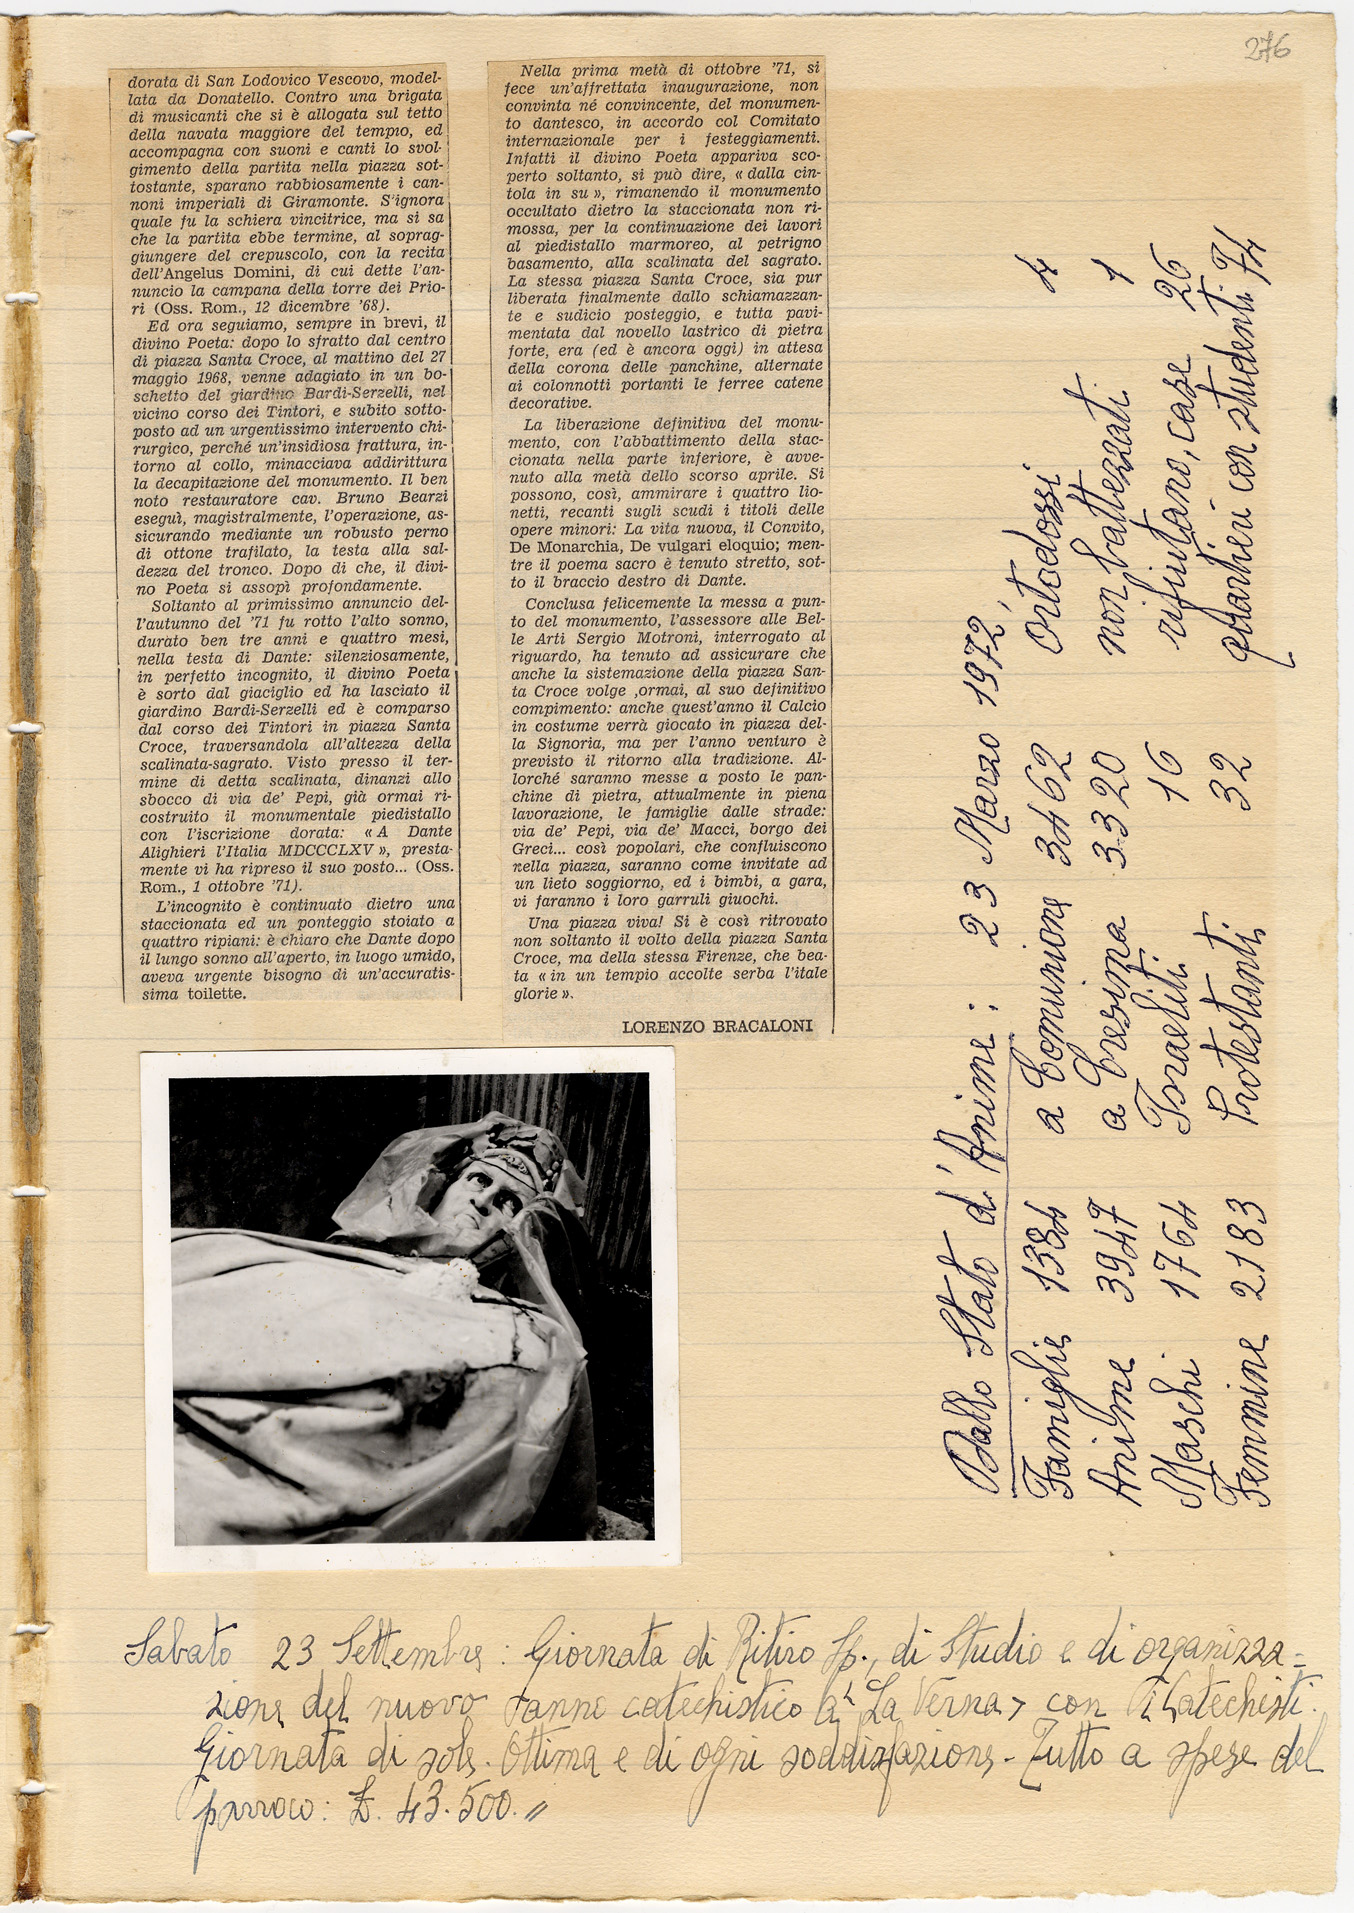 276
dorata di San Lodovico Vescovo, model-
lata da Donatello. Contro una brigata
di musicanti che si è allogata sul tetto
della navata maggiore del tempio, ed
accompagna con suoni e canti lo svol-
gimento della partita nella piazza sot-
tostante, sparano rabbiosamente i can-
noni imperiali di Giramonte. S'ignora
quale fu la schiera vincitrice, ma si sa
che la partita ebbe termine, al soprag-
giungere del crepuscolo, con la recita
dell'Angelus Domini, di cui dette l'an-
nuncio la campana della torre dei Prio-
ri (Oss. Rom., 12 dicembre '68).
Ed ora seguiamo, sempre in brevi, il
divino Poeta: dopo lo sfratto dal centro
di piazza Santa Croce, al mattino del 27
maggio 1968, venne adagiato in un bo-
schetto del giardino Bardi-Serzelli, nel
vicino corso dei Tintori, e subito sotto-
posto ad un urgentissimo intervento chi-
rurgico, perché un'insidiosa frattura, in-
torno al collo, minacciava addirittura
la decapitazione del monumento. Il ben
noto restauratore cav. Bruno Bearzi
eseguì, magistralmente, l'operazione, as-
sicurando mediante un robusto perno
di ottone trafilato, la testa alla sal-
dezza del tronco. Dopo di che, il divi-
no Poeta si assopì profondamente.
Soltanto al primissimo annuncio del-
l'autunno del '71 fu rotto l'alto sonno,
durato ben tre anni e quattro mesi,
nella testa di Dante: silenziosamente,
in perfetto incognito, il divino Poeta
è sorto dal giaciglio ed ha lasciato il
giardino Bardi-Serzelli ed è comparso
dal corso dei Tintori in piazza Santa
Croce, traversandola all'altezza della
scalinata-sagrato. Visto presso il ter-
mine di detta scalinata, dinanzi allo
sbocco di via de' Pepi, già ormai ri-
costruito il monumentale piedistallo
con l'iscrizione dorata: « A Dante
Alighieri l'Italia MDCCCLXV », presta-
mente vi ha ripreso il suo posto... (Oss.
Rom., 1 ottobre '71).
L'incognito è continuato dietro una
staccionata ed un ponteggio stoiato a
quattro ripiani: è chiaro che Dante dopo
il lungo sonno all'aperto, in luogo umido,
aveva urgente bisogno di un'accuratis-
sima toilette.
Nella prima metà di ottobre '71, si
fece un'affrettata inaugurazione, non
convinta né convincente, del monumen-
to dantesco, in accordo col Comitato
internazionale per i festeggiamenti.
Infatti il divino Poeta appariva sco-
perto soltanto, si può dire, « dalla cin-
tola in su », rimanendo il monumento
occultato dietro la staccionata non ri-
mossa, per la continuazione dei lavori
al piedistallo marmoreo, al petrigno
basamento, alla scalinata del sagrato.
La stessa piazza Santa Croce, sia pur
liberata finalmente dallo schiamazzan-
te e sudicio posteggio, e tutta pavi-
mentata dal novello lastrico di pietra
forte, era (ed è ancora oggi) in attesa
della corona delle panchine, alternate
ai colonnotti portanti le ferree catene
decorative.
La liberazione definitiva del monu-
mento, con l'abbattimento della stac-
cionata nella parte inferiore, è avve-
nuto alla metà dello scorso aprile. Si
possono, così, ammirare i quattro lio-
netti, recanti sugli scudi i titoli delle
opere minori: La vita nuova, il Convito,
De Monarchia, De vulgari eloquio; men-
tre il poema sacro è tenuto stretto, sot-
to il braccio destro di Dante.
Conclusa felicemente la messa a pun-
to del monumento, l'assessore alle Bel-
le Arti Sergio Motroni, interrogato al
riguardo, ha tenuto ad assicurare che
anche la sistemazione della piazza San-
ta Croce volge ,ormai, al suo definitivo
compimento: anche quest'anno il Calcio
in costume verrà giocato in piazza del-
la Signoria, ma per l'anno venturo è
previsto il ritorno alla tradizione. Al-
lorché saranno messe a posto le pan-
chine di pietra, attualmente in piena
lavorazione, le famiglie dalle strade:
via de' Pepi, via de' Macci, borgo dei
Greci... così popolari, che confluiscono
nella piazza, saranno come invitate ad
un lieto soggiorno, ed i bimbi, a gara,
vi faranno i loro garruli giuochi.
Una piazza viva! Si è così ritrovato
non soltanto il volto della piazza Santa
Croce, ma della stessa Firenze, che bea-
ta « in un tempio accolte serba l'itale
glorie ».
LORENZO BRACALONI
Dallo Stato d'Anime: 23 Marzo 1972,
Famiglie 1384 a Comunione 3462 Ortodossi 4
Anime 3947 a Cresima 3320 non battezzati 1
Maschi 1764 Israeliti 16 rifiutano, case 26
Femmine 2183 Protestanti 32 quartieri con studenti 74
Sabato 23 Settembre: Giornata di Ritiro Sp., di Studio e di organizza=
zione del nuovo anno catechistico a La Verna, con i Catechisti.
Giornata di sole. Ottima e di ogni soddisfazione - Tutto a spese del
parroco: £. 43.500.=